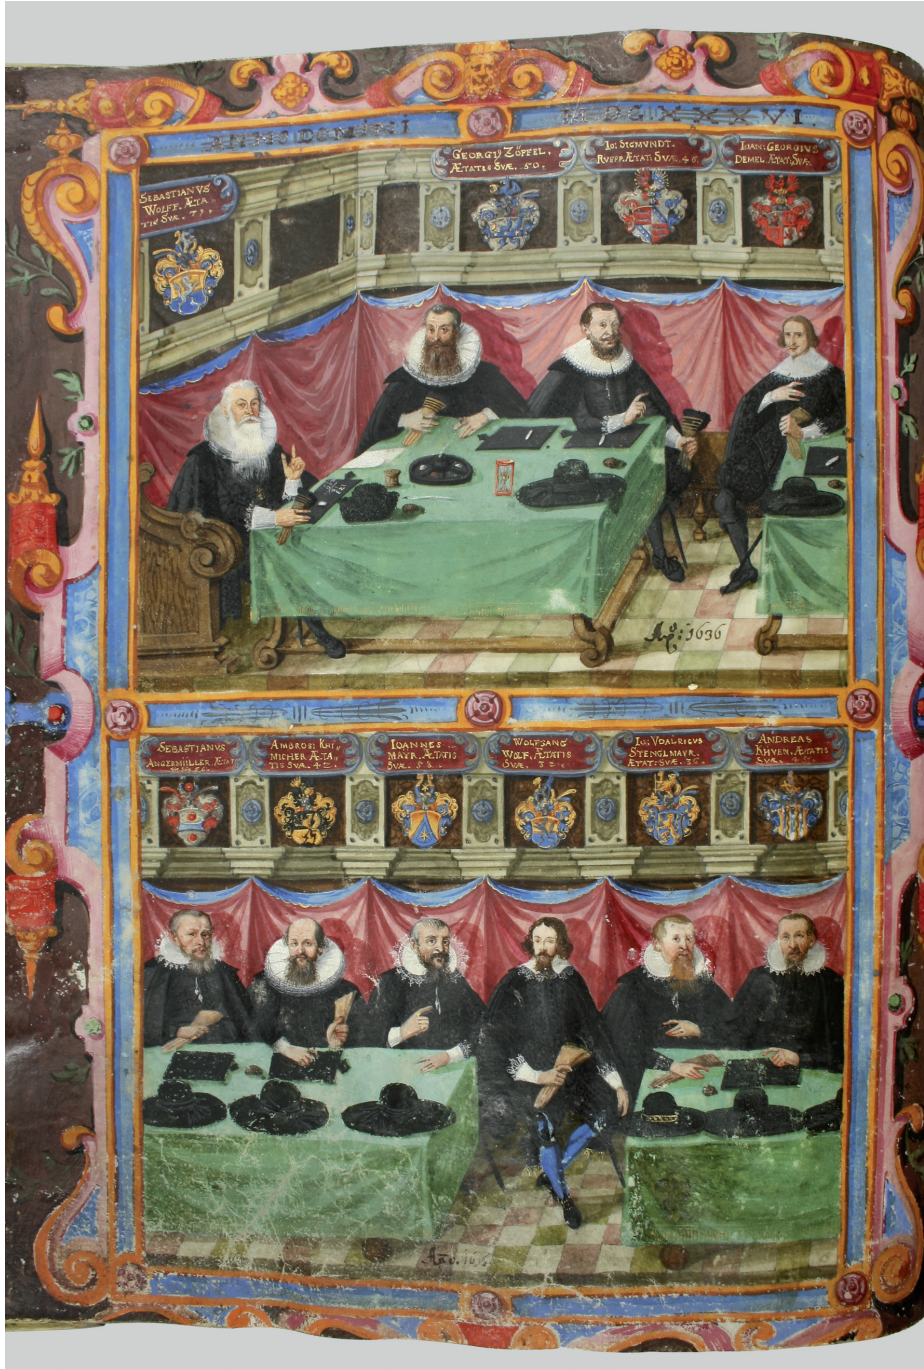 ANNO DOMINI MDCXXXVI
SEBASTIANVS
WOLFF. ÆTA
TIS SVÆ. 79.
GEORGI9 ZÖPFEL.
ÆTATIS SVÆ. 50.
IO: SIGMUNDT.
RVEPP ÆTAT: SVÆ. 46.
IOAN: GEORGIVS
DEMEL ÆTAT: SVÆ
Aº: 1636
SEBASTIANVS
ANGERMÜLLER. ÆTAT
AMBROSI: KHI
MICHER ÆTA
TIS SVÆ. 42.
IOANNES
MAYR. ÆTATIS
SVÆ. 53.
WOLFGANG
WOLF. ÆTATIS
SVÆ. 32.
IO: VDALRICUS
STENGLMAYR.
ÆTAT: SVÆ. 36.
ANDREAS
KHVEN. ÆTATIS
SVÆ.